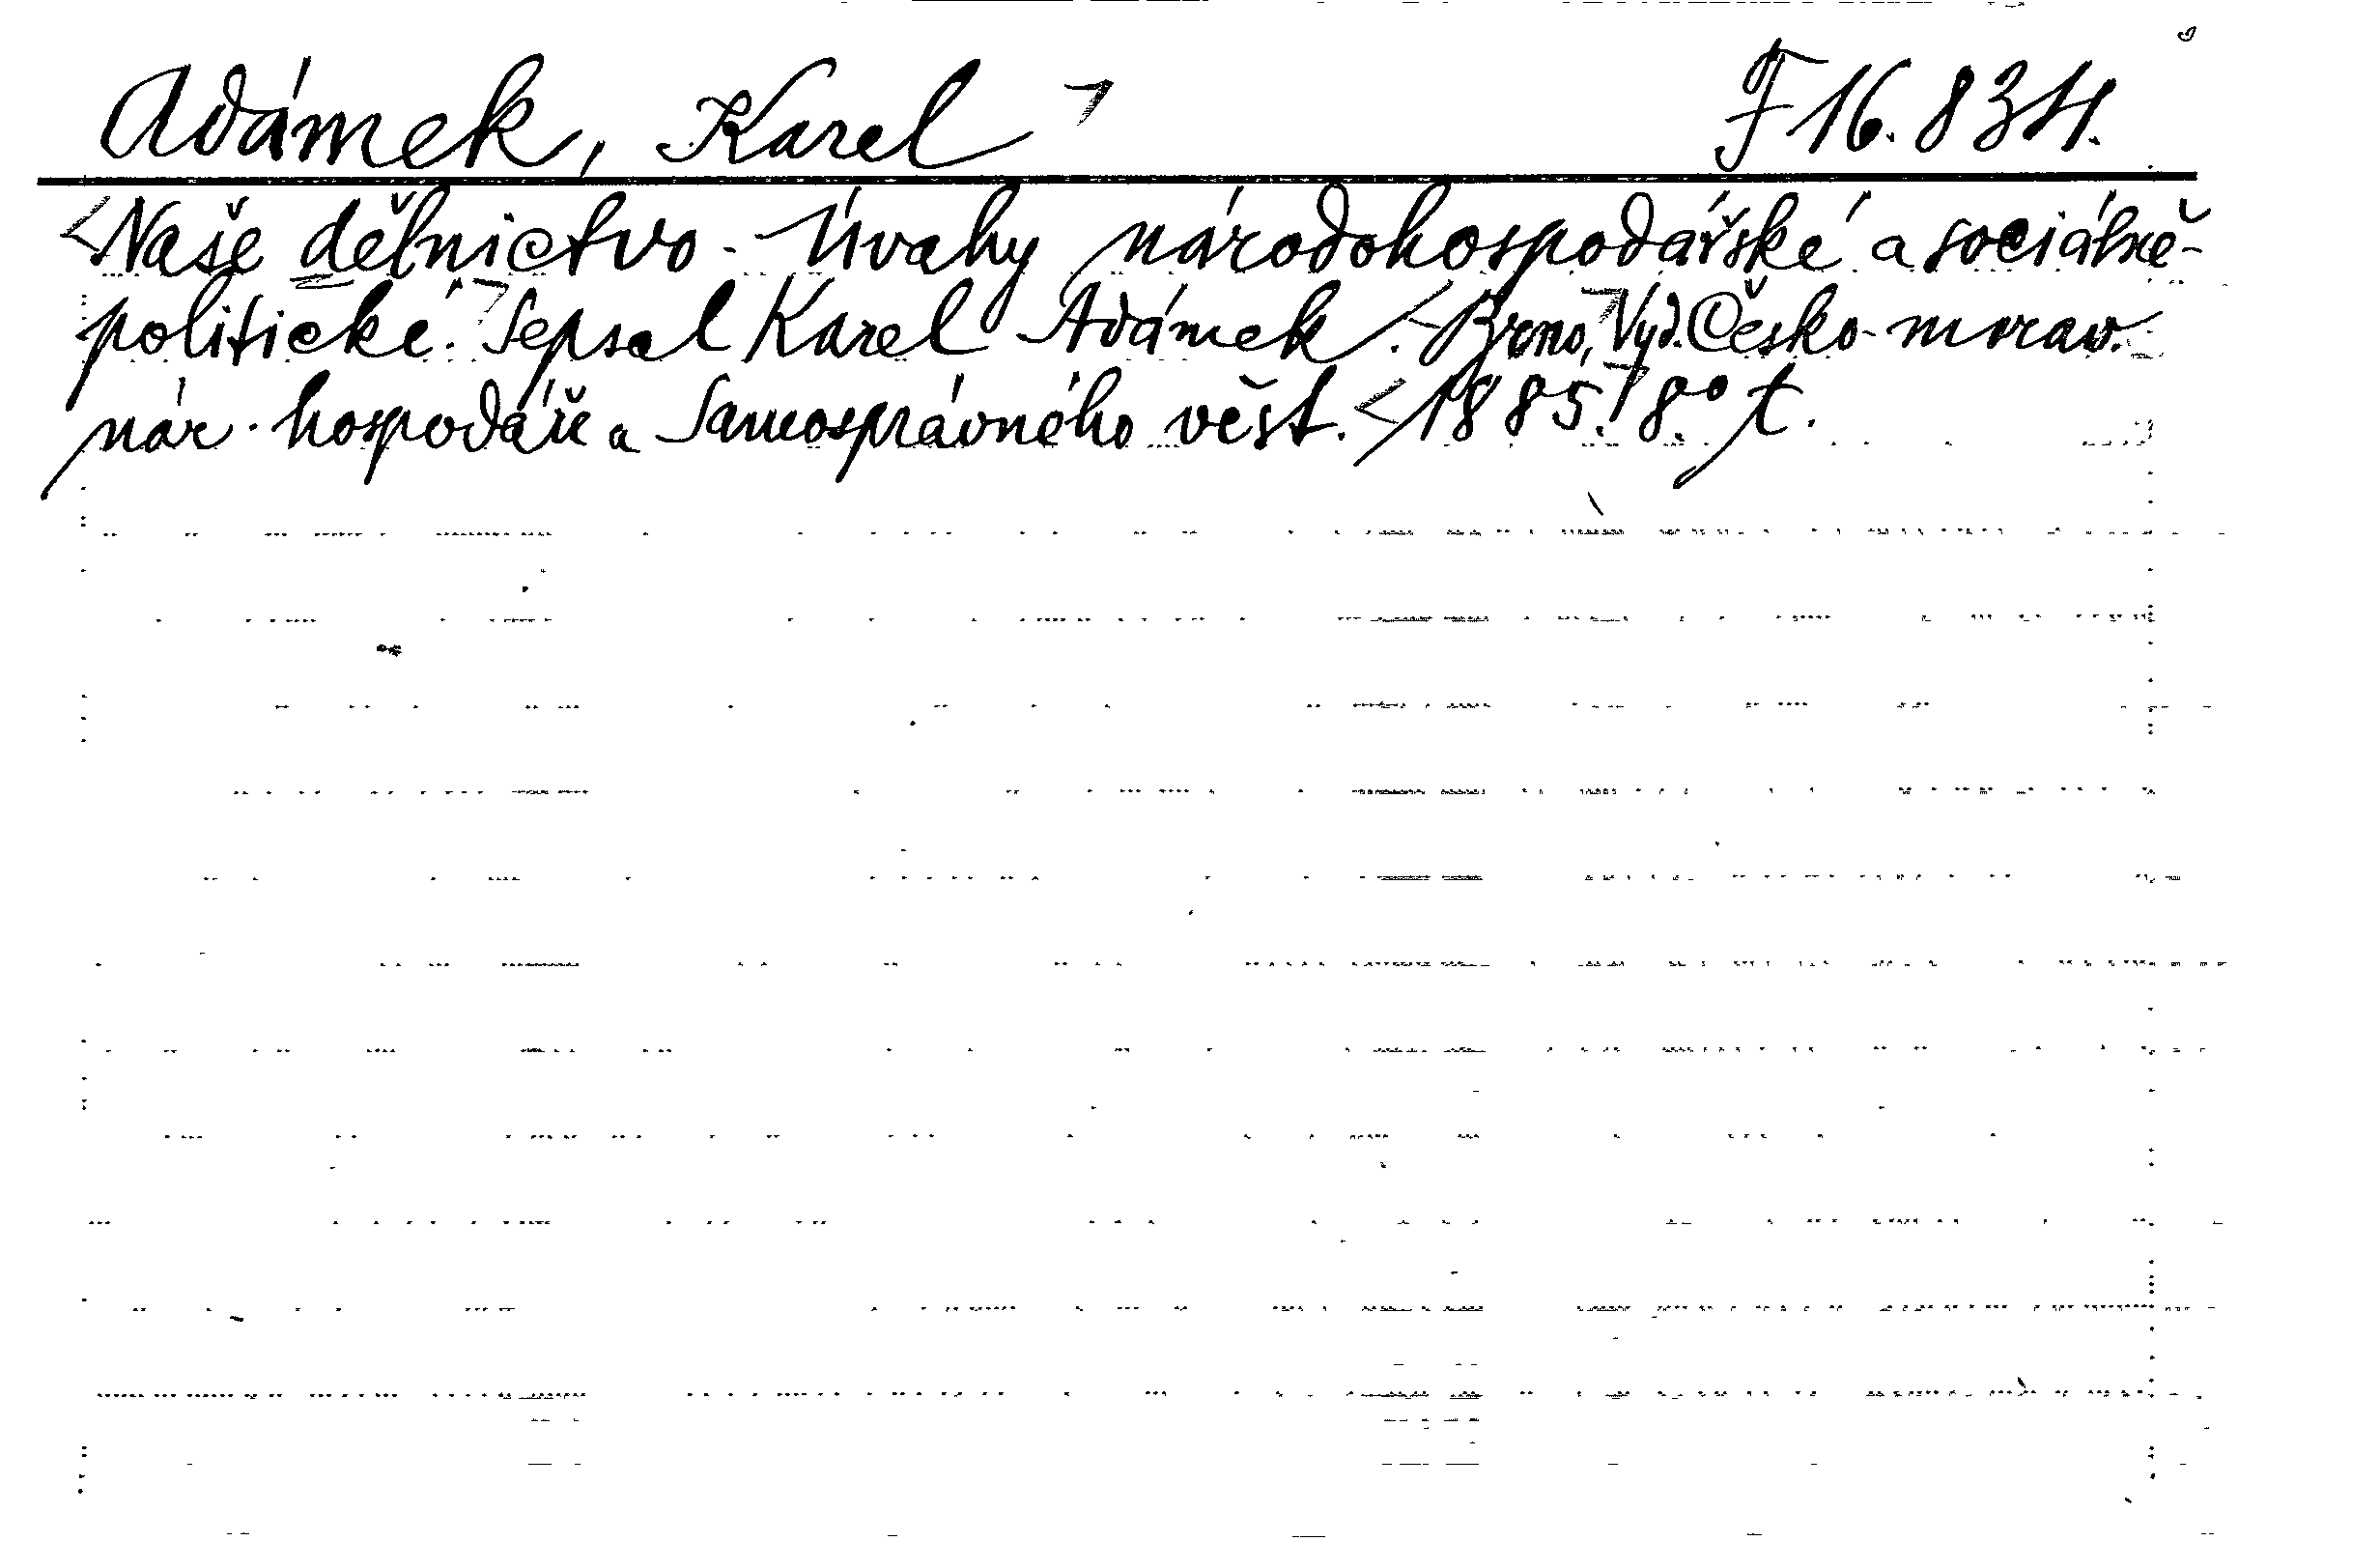 Adámek, Karel F 16.834.
Naše dělnictvo. Úvahy národohospodářské a sociálně-
politické. Sepsal Karel Adámek. Brno, Vyd. Česko-morav.
nár. hospodáře a Samosprávného věst. 1885. 8° t.